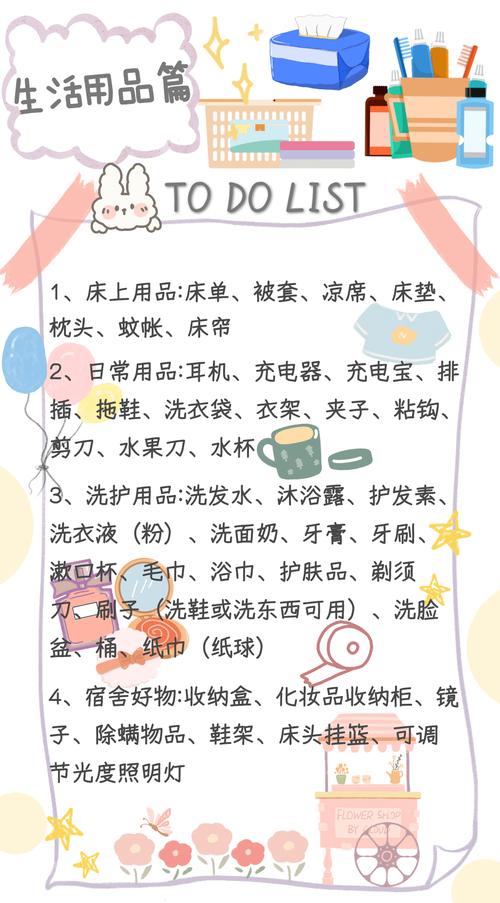 生活用品篇
TO DO LIST
1、床上用品:床单、被套、凉席、床垫、
枕头、蚊帐、床帘
2、日常用品:耳机、充电器、充电宝、排
插、拖鞋、洗衣袋、衣架、夹子、粘钩、
剪刀、水果刀、水杯
3、洗护用品:洗发水、沐浴露、护发素、
洗衣液（粉）、洗面奶、牙膏、牙刷、
漱口杯、毛巾、浴巾、护肤品、剃须
刀、刷子（洗鞋或洗东西可用）、洗脸
盆、桶、纸巾（纸球）
4、宿舍好物:收纳盒、化妆品收纳柜、镜
子、除螨物品、鞋架、床头挂篮、可调
节光度照明灯
FLOWER SHOP
BY CLOUD